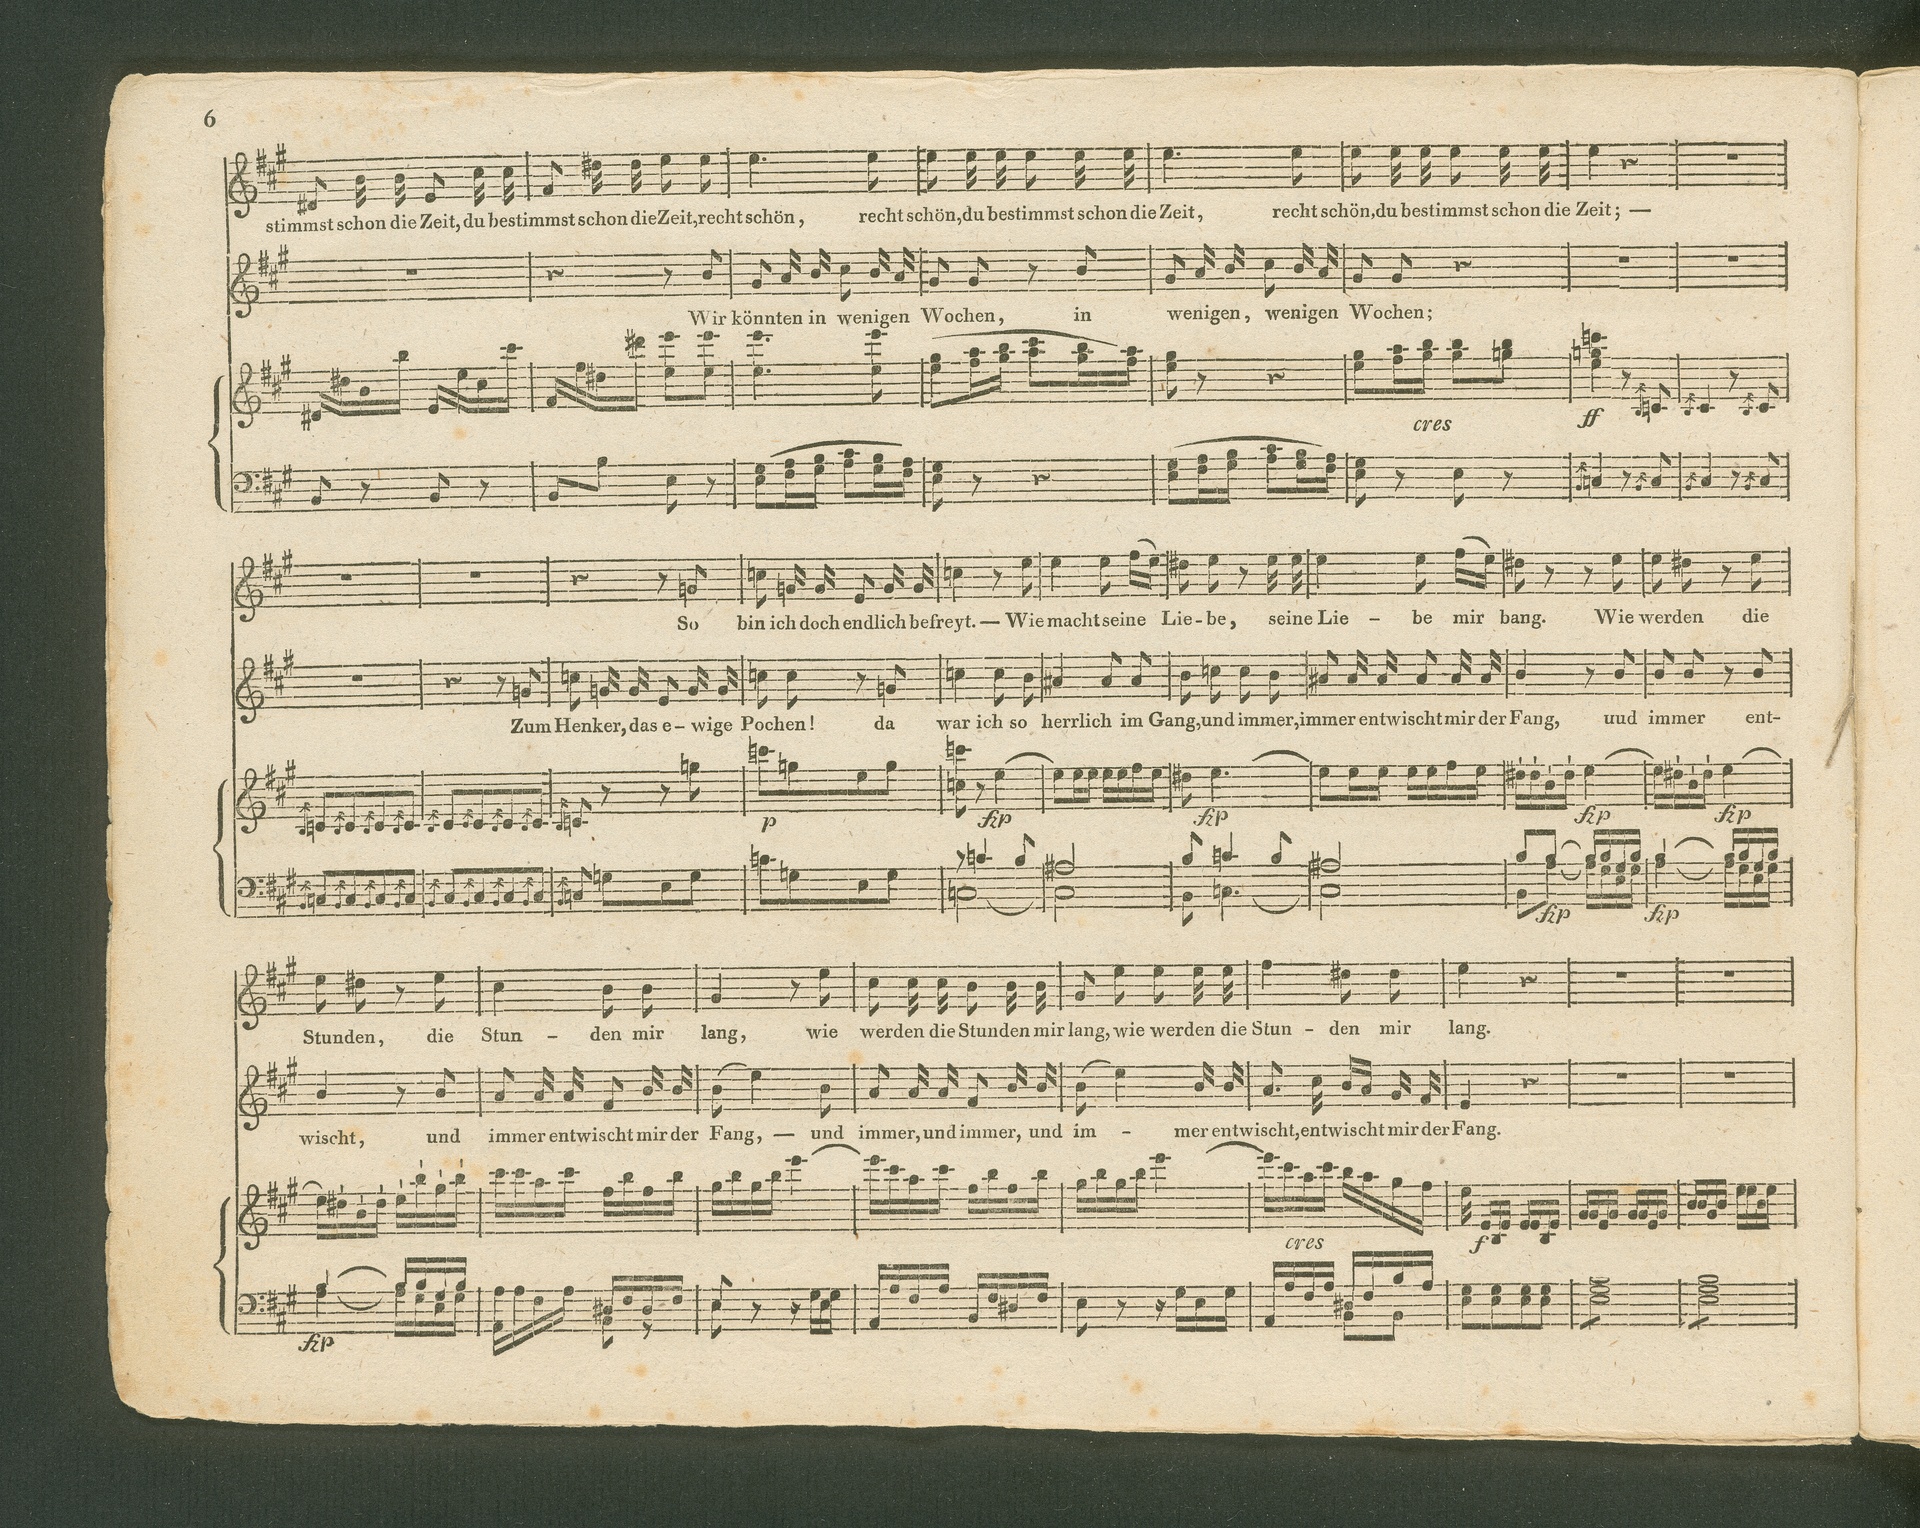 6
stimmst schon die Zeit, du bestimmst schon die Zeit, recht schön, recht schön, du bestimmst schon die Zeit, recht schön, du bestimmst schon die Zeit; —
Wir könnten in wenigen Wochen, in wenigen, wenigen Wochen;
cres ff
So bin ich doch endlich befreyt. — Wie macht seine Lie - be, seine Lie - be mir bang. Wie werden die
Zum Henker, das e - wige Pochen! da war ich so herrlich im Gang, und immer, immer entwischt mir der Fang, uud immer ent-
p fzp fzp fzp fzp
fzp fzp
Stunden, die Stun - den mir lang, wie werden die Stunden mir lang, wie werden die Stun - den mir lang.
wischt, und immer entwischt mir der Fang, — und immer, und immer, und im - mer entwischt, entwischt mir der Fang.
cres f
fzp